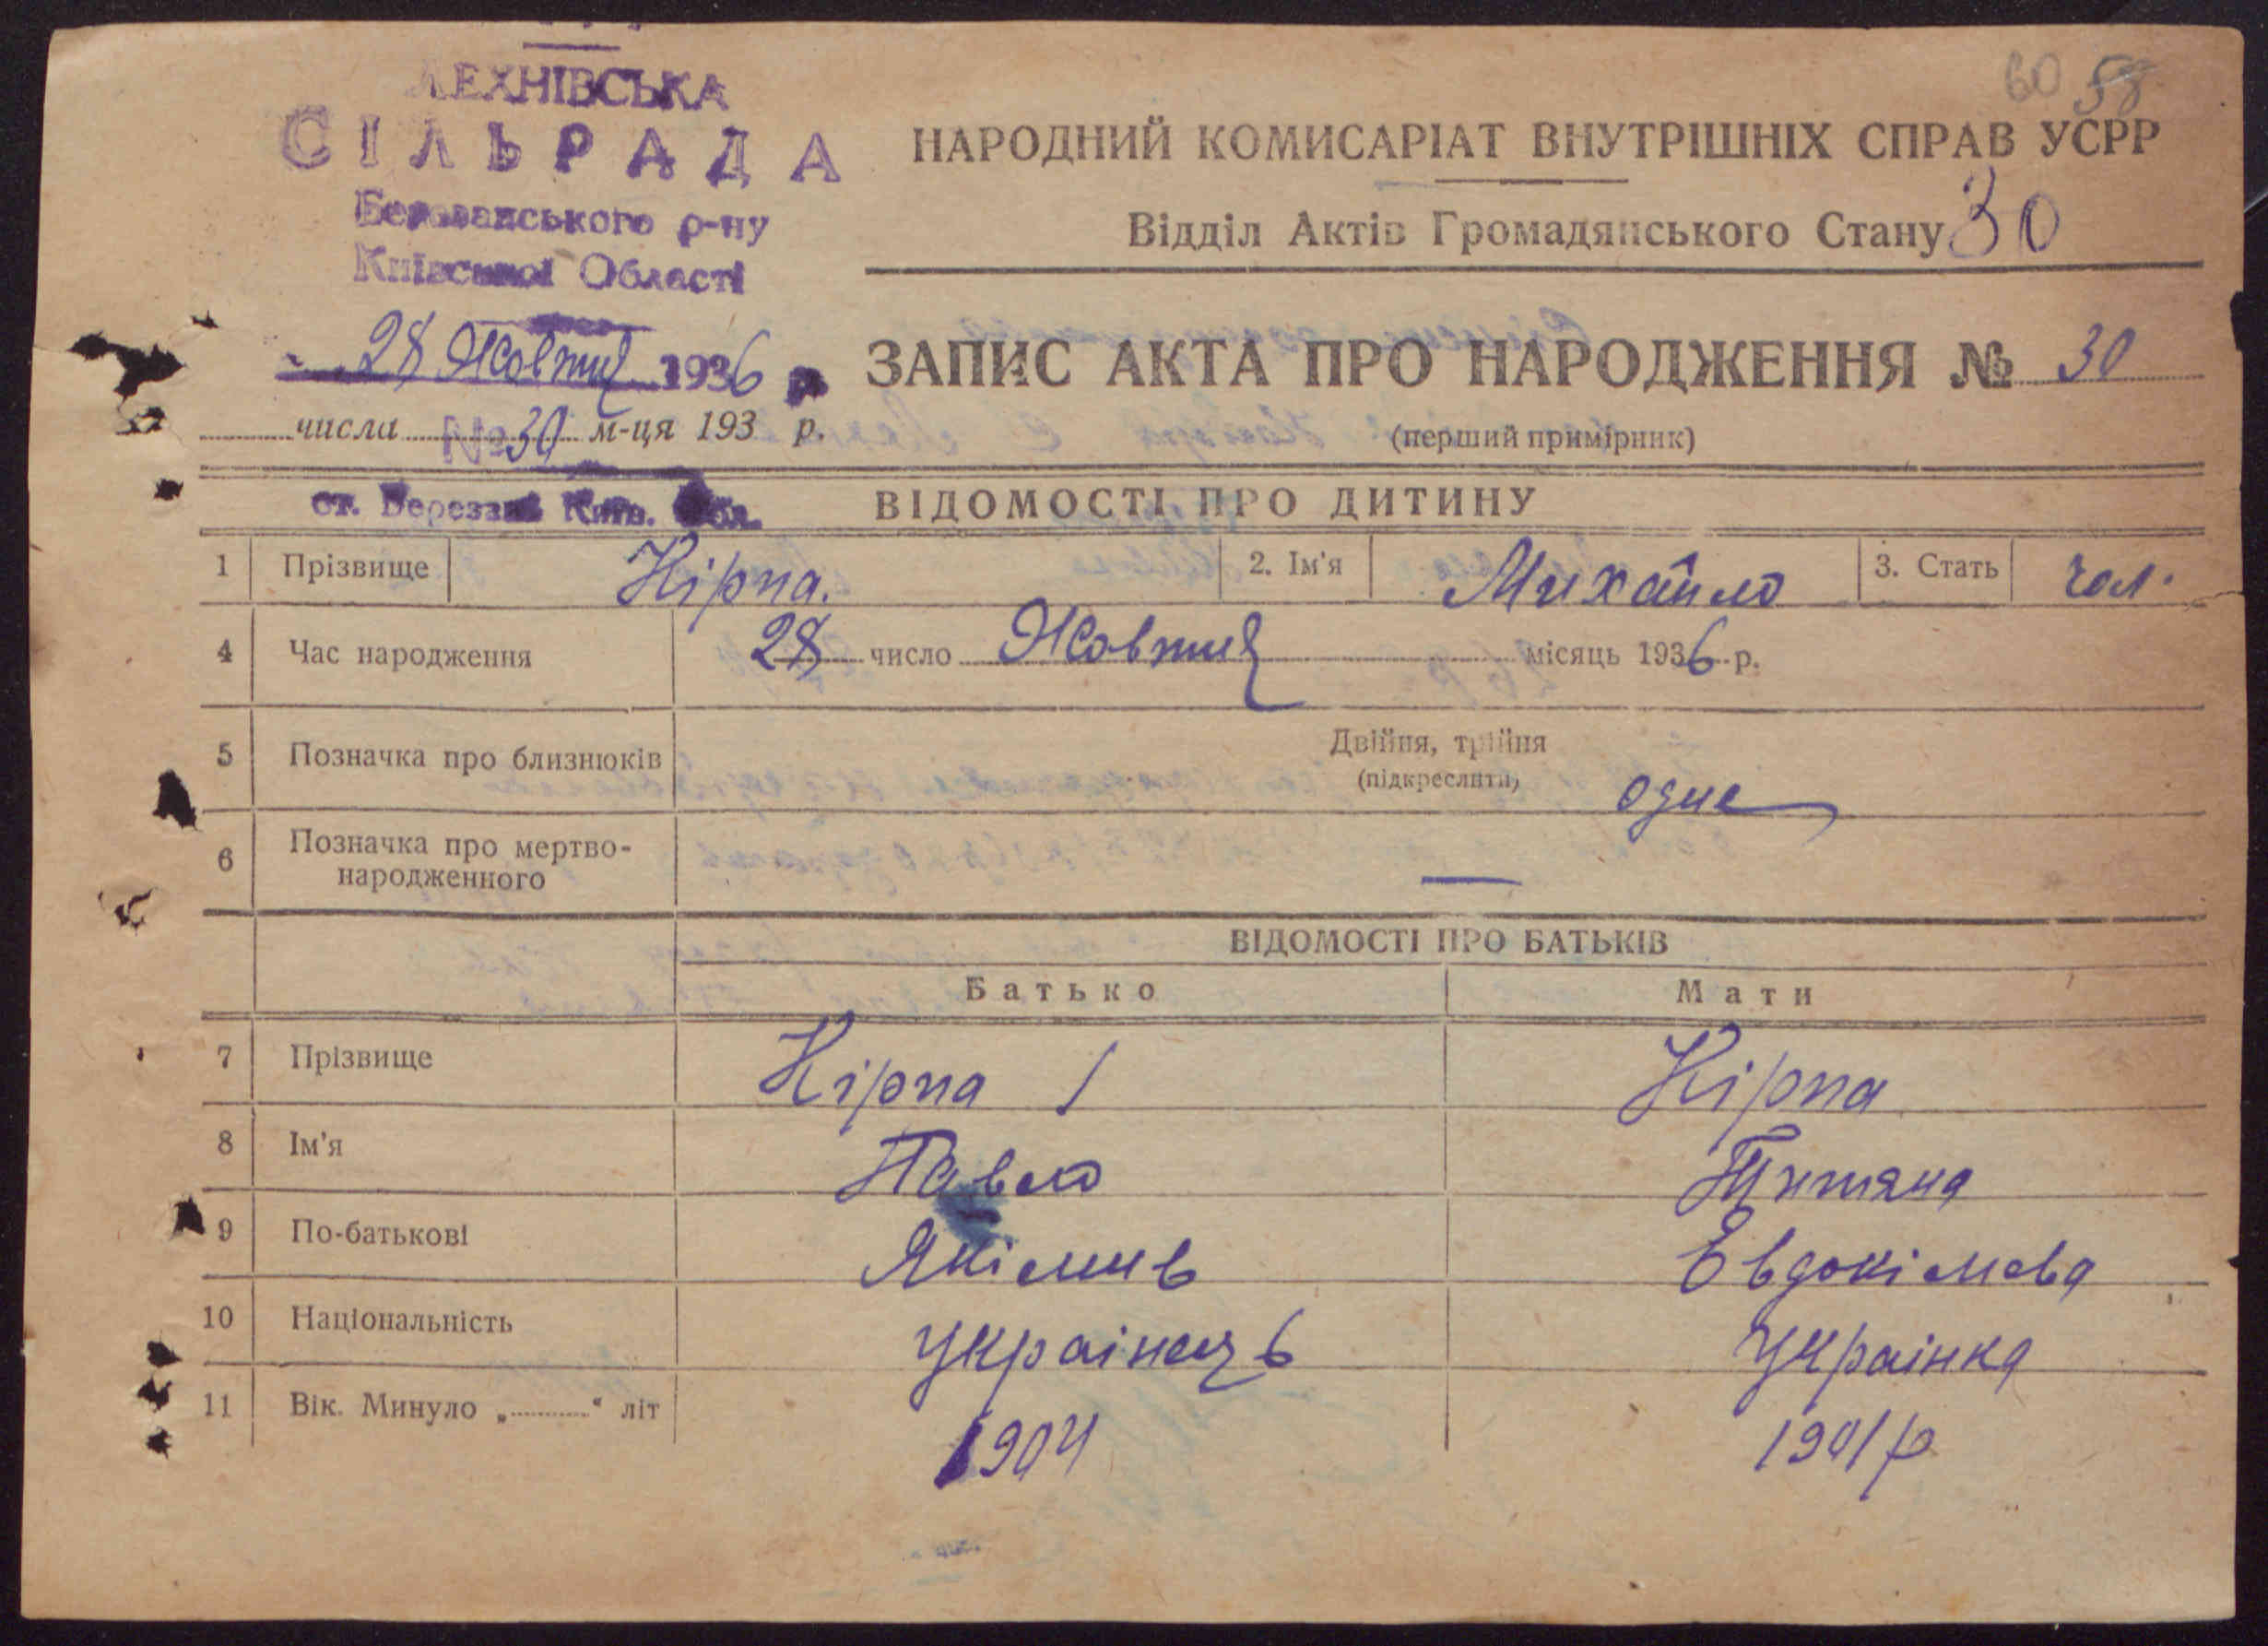 ЛЕХНІВСЬКА
СІЛЬРАДА
Березанського р-ну
Київської Області
28 Жовтня 1936 р
числа м-ця 193 р.
№ 30
ст. Березань Київ. Обл.
60 58
НАРОДНИЙ КОМИСАРІАТ ВНУТРІШНІХ СПРАВ УСРР
Відділ Актів Громадянського Стану 30
ЗАПИС АКТА ПРО НАРОДЖЕННЯ № 30
(перший примірник)
ВІДОМОСТІ ПРО ДИТИНУ
1 Прізвище Кірпа. 2. Ім'я Михайло 3. Стать чол.
4 Час народження 28 число Жовтня місяць 1936 р.
5 Позначка про близнюків Двійня, трійня
(підкреслити) одне
6 Позначка про мертво-
народженного —
ВІДОМОСТІ ПРО БАТЬКІВ
Батько Мати
7 Прізвище Кірпа Кірпа
8 Ім'я Павло Титяна
9 По-батькові Якімив Евдокімова
10 Національність Украінець Украінка
11 Вік. Минуло „ “ літ 1904 1901 р